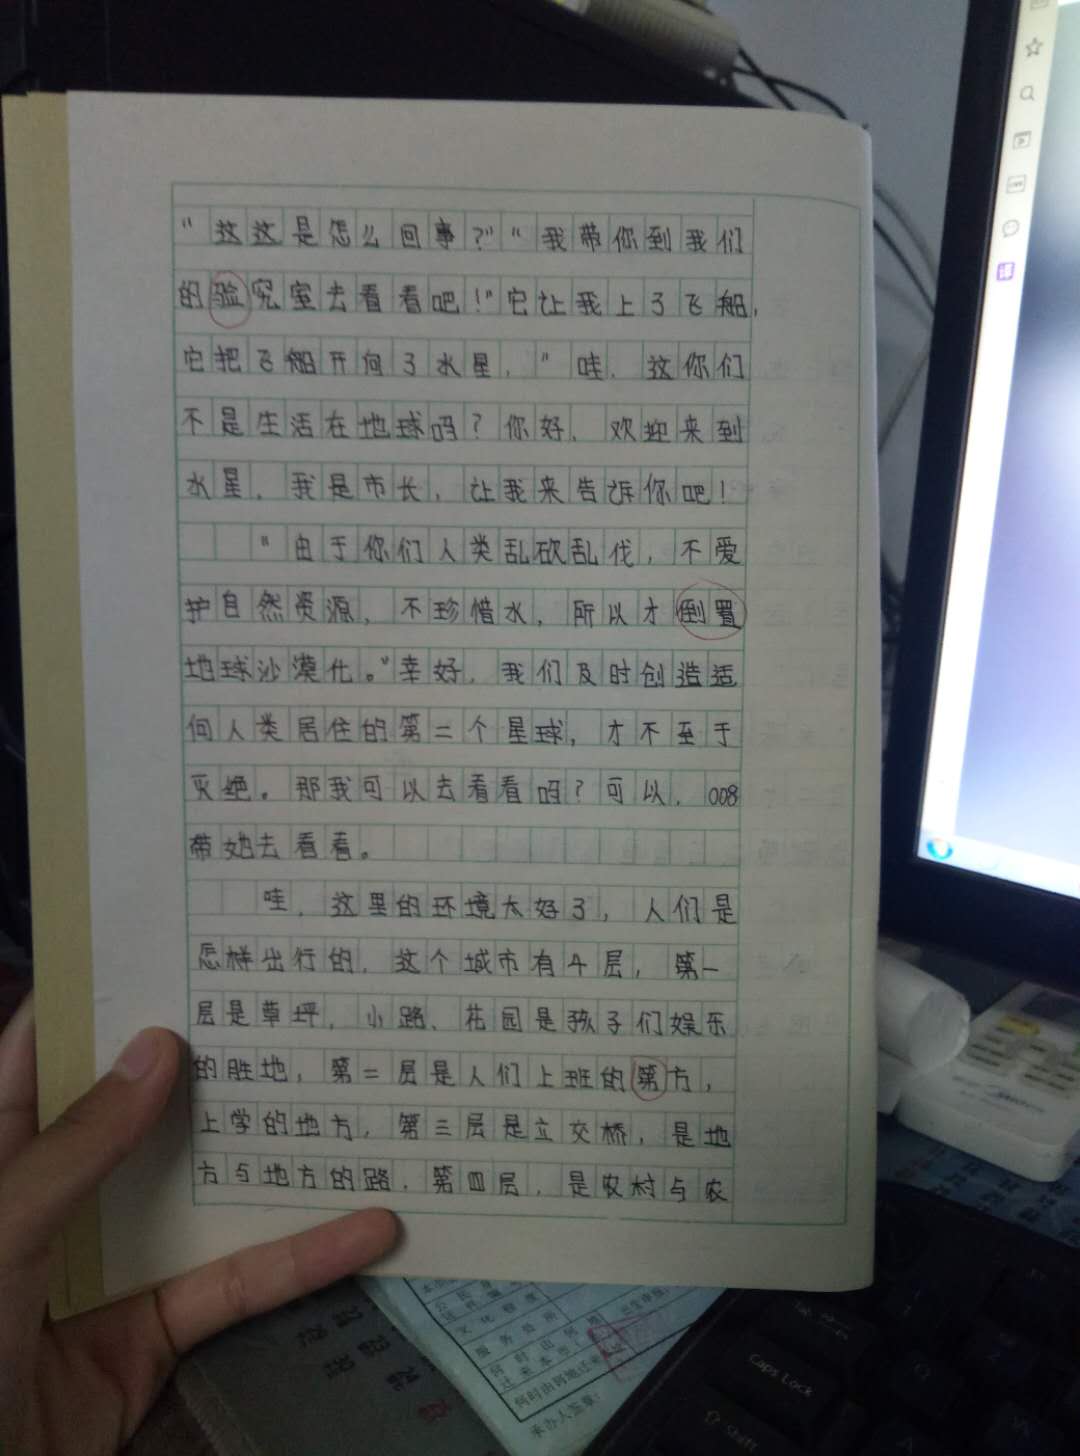 “这这是怎么回事?”“我带你到我们
的验究室去看看吧!”它让我上了飞船,
它把飞船开向了水星,”哇,这你们
不是生活在地球吗?你好,欢迎来到
水星,我是市长,让我来告诉你吧!
“由于你们人类乱砍乱伐,不爱
护自然资源,不珍惜水,所以才倒置
地球沙漠化。”幸好,我们及时创造适
何人类居住的第二个星球,才不至于
灭绝。那我可以去看看吗?可以,008
带她去看看。
哇,这里的环境太好了,人们是
怎样出行的,这个城市有4层,第一
层是草坪,小路、花园是孩子们娱乐
的胜地,第二层是人们上班的第方,
上学的地方,第三层是立交桥,是地
方与地方的路,第四层,是农村与农
文化程度
服务处所
承办人签章:
Caps Lock
Shift